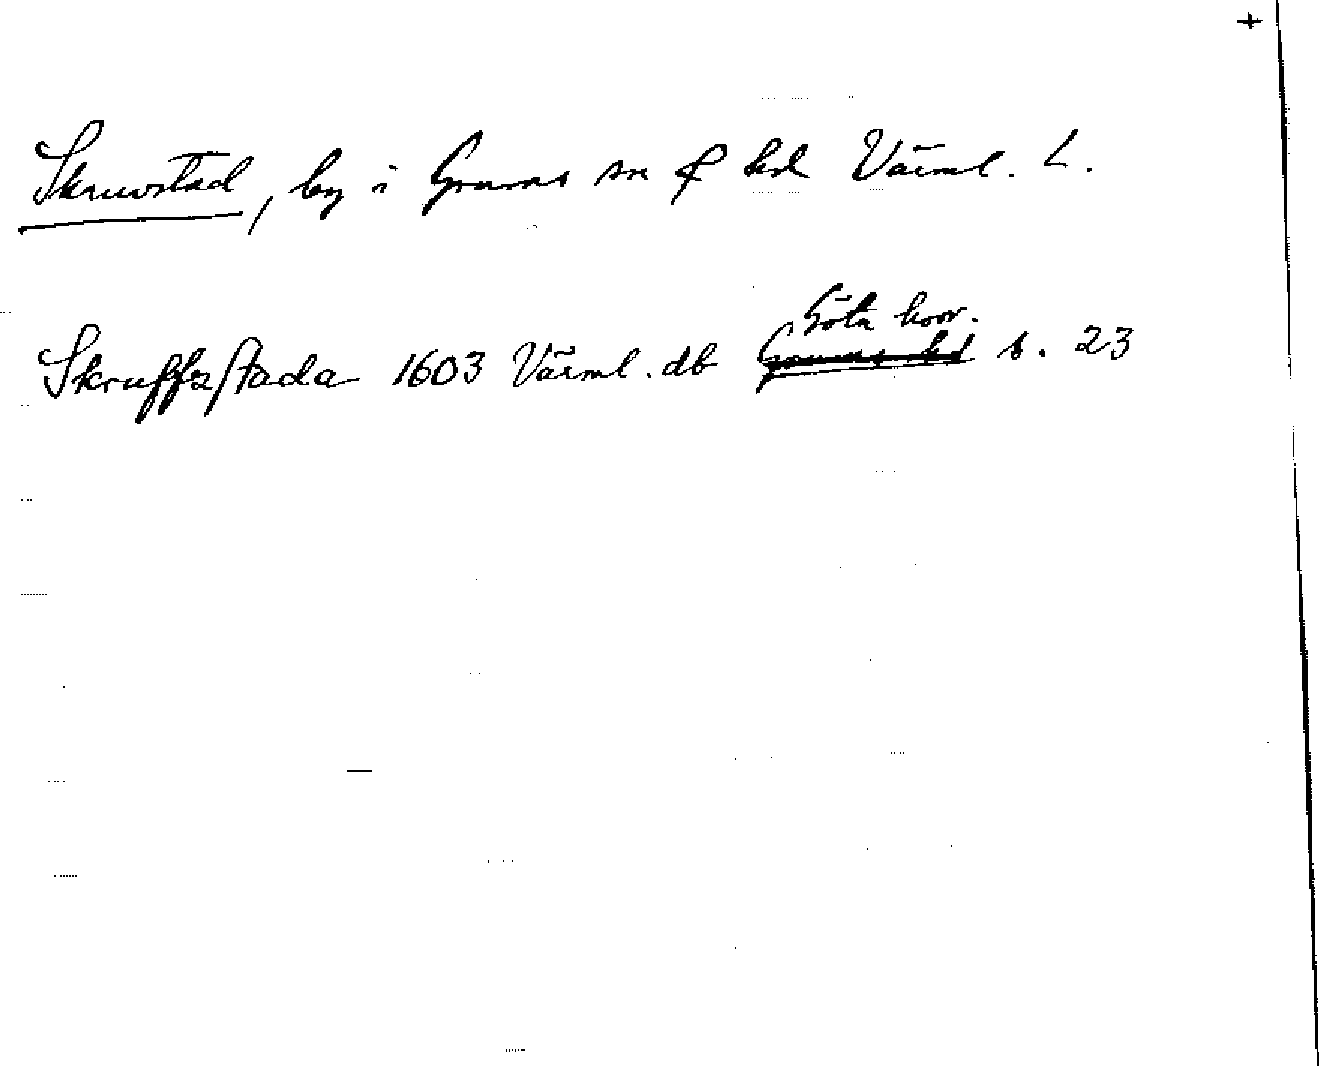 +
Skruvstad, by i Grums sn & hd Värml. L.
Göta hovr.
Skruffzstada 1603 Värml. db Grums hd s. 23